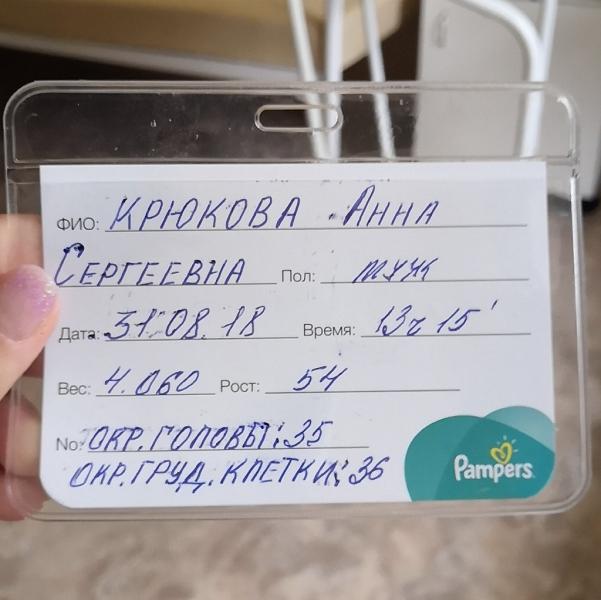 ФИО: КРЮКОВА АННА
СЕРГЕЕВНА Пол: муж
Дата: 31.08.18 Время: 13ч 15'
Вес: 4.060 Рост: 54
No: ОКР. ГОЛОВЫ: 35
ОКР. ГРУД. КЛЕТКИ: 36
Pampers